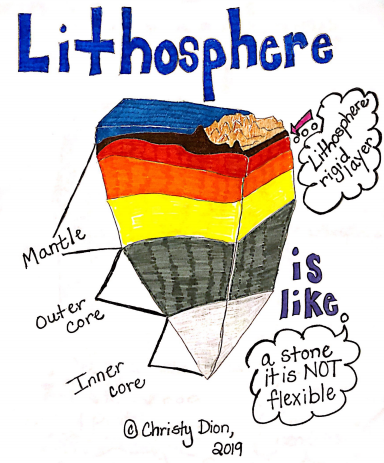 Lithosphere
Lithosphere
rigid
layer
Mantle
Outer
core
Inner
core
is
like
a stone
it is NOT
flexible
© Christy Dion,
2019